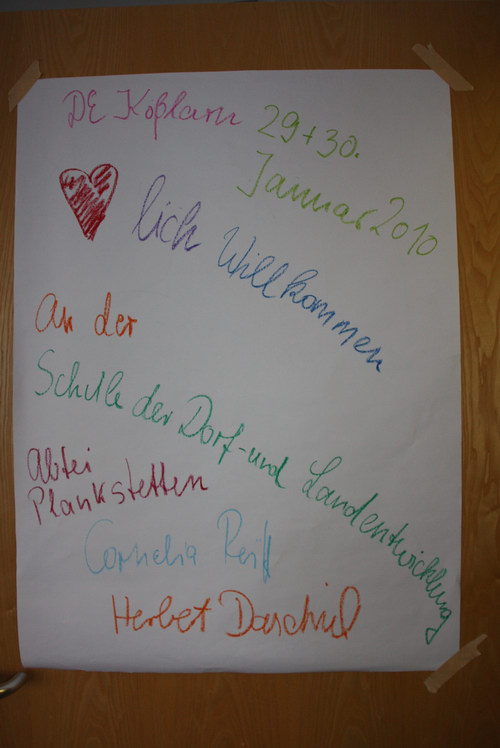 DE Koßlarn
29+30.
Januar 2010
lich Willkommen
An der
Schule der Dorf- und Landentwicklung
Abtei
Plankstetten
Cornelia
Herbert